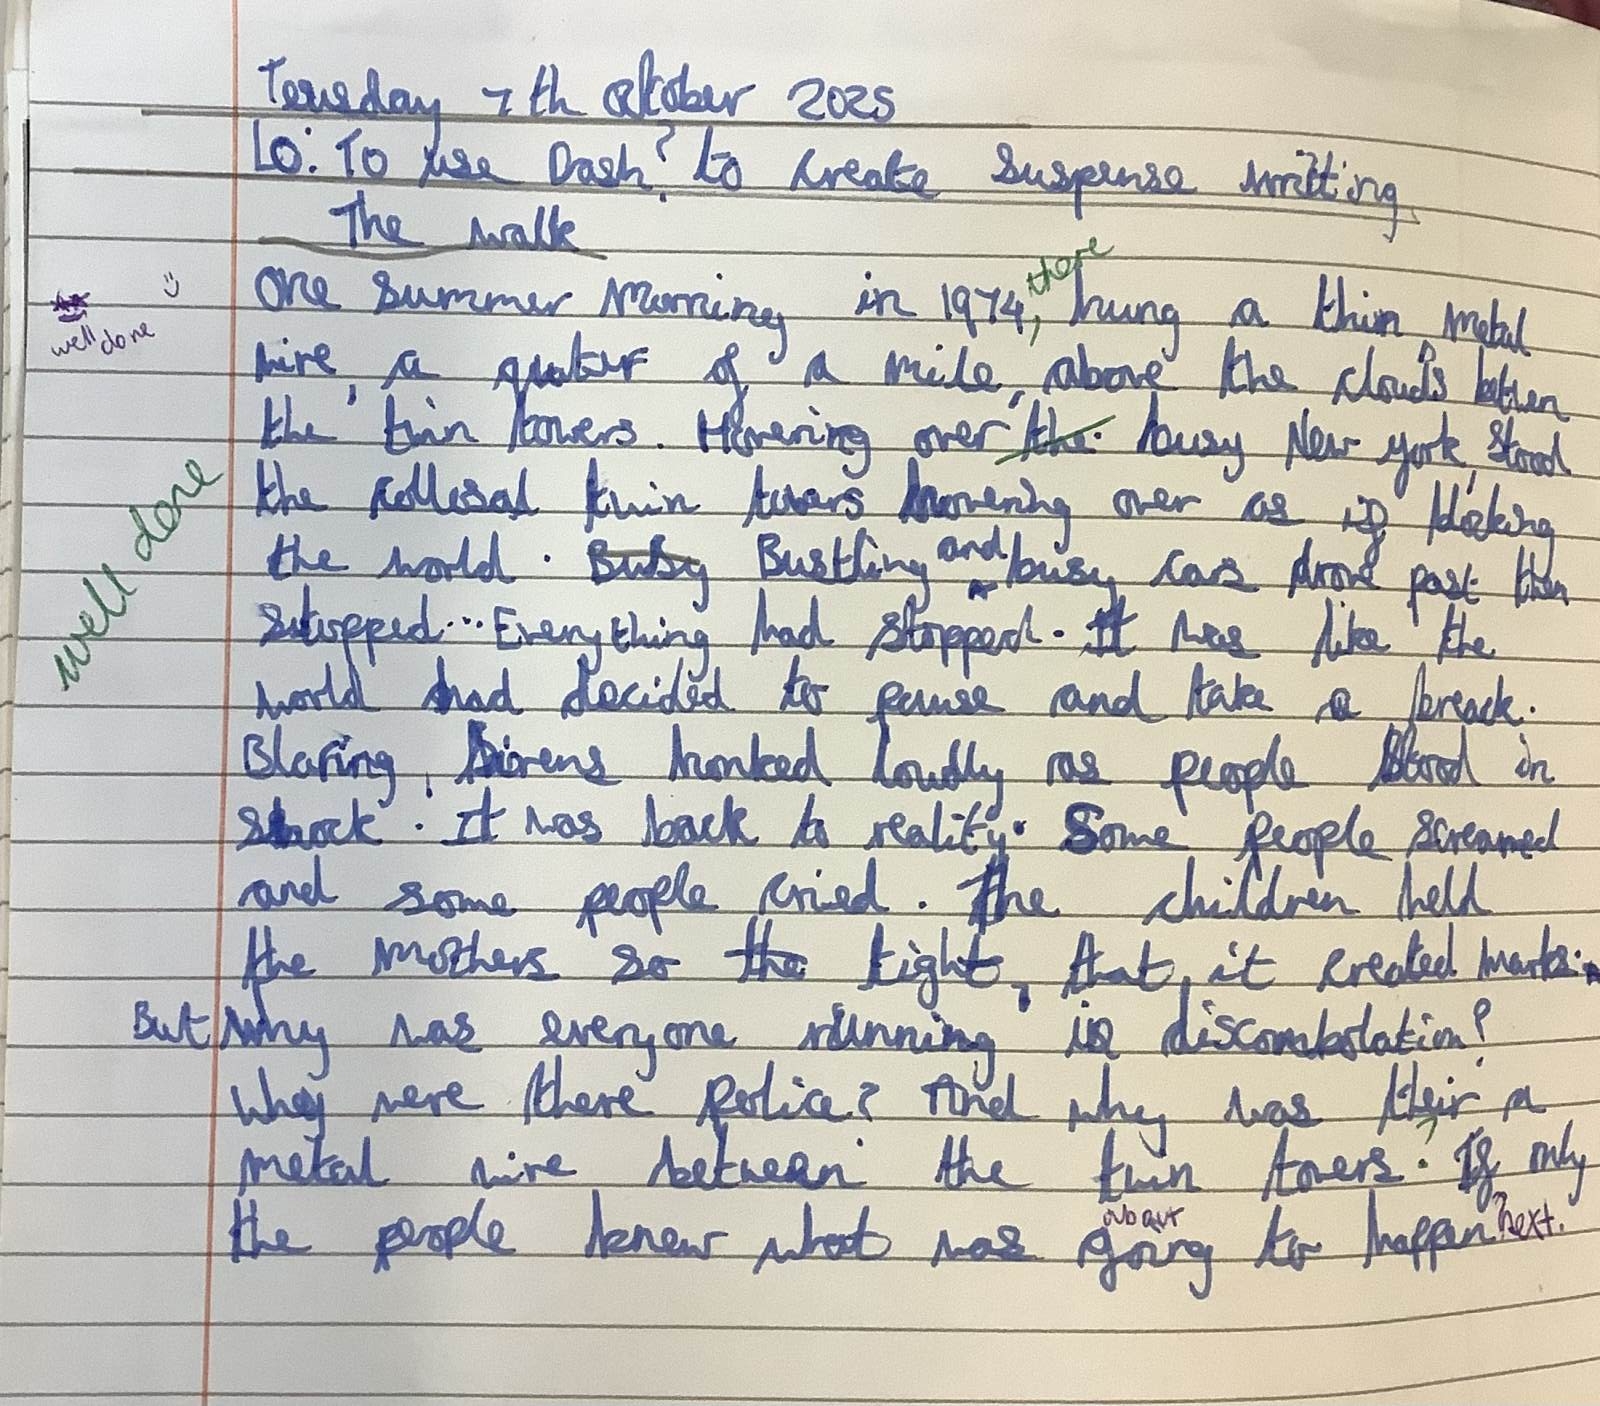 Teusday 7th oktober 2025
LO: To use Dash? to create suspense writting
The walk
One summer Morning in 1974, there hung a thin metal
wire, a quater of a mile, above the clouds betwen
the twin towers. Hovering over the busy New york, stood
the collosal twin towers hovering over as if blocking
the world. Busy Bustling and busy cars drove past then
stopped... Everything had stopped. It was like the
world had decided to pause and take a breack.
Blaring, sirens honked loudly as people stood in
shock. It was back to reality. Some people screamed
and some people cried. The children held
the mothers so the tight, that, it created marks.
But why was everyone running in discombolation?
Why were there police? And why was their a
metal wire between the twin towers. If only
the people knew what was going about to happen next.
well done
well done